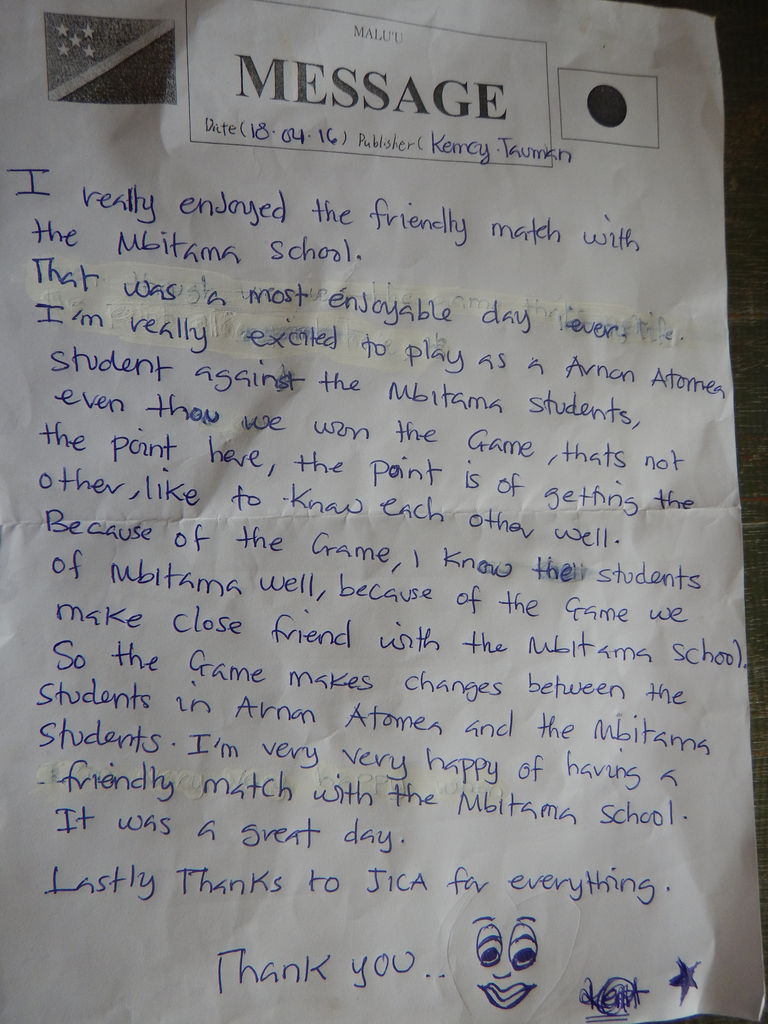 MALU'U
MESSAGE
Date (18.04.16) Publisher ( Kemcy.Tauman
I really enjoyed the friendly match with
the Mbitama School.
That was a most enjoyable day ever.
I'm really excited to play as a Arnon Atomea
student against the Mbitama students,
even thou we won the Game, thats not
the point here, the point is of getting the
other, like to know each other well.
Because of the Game, I know the students
of Mbitama well, because of the Game we
make close friend with the Mbitama School.
So the Game makes changes between the
Students in Arnon Atomea and the Mbitama
Students. I'm very very happy of having a
friendly match with the Mbitama School.
It was a great day.
Lastly Thanks to JICA for everything.
Thank you..